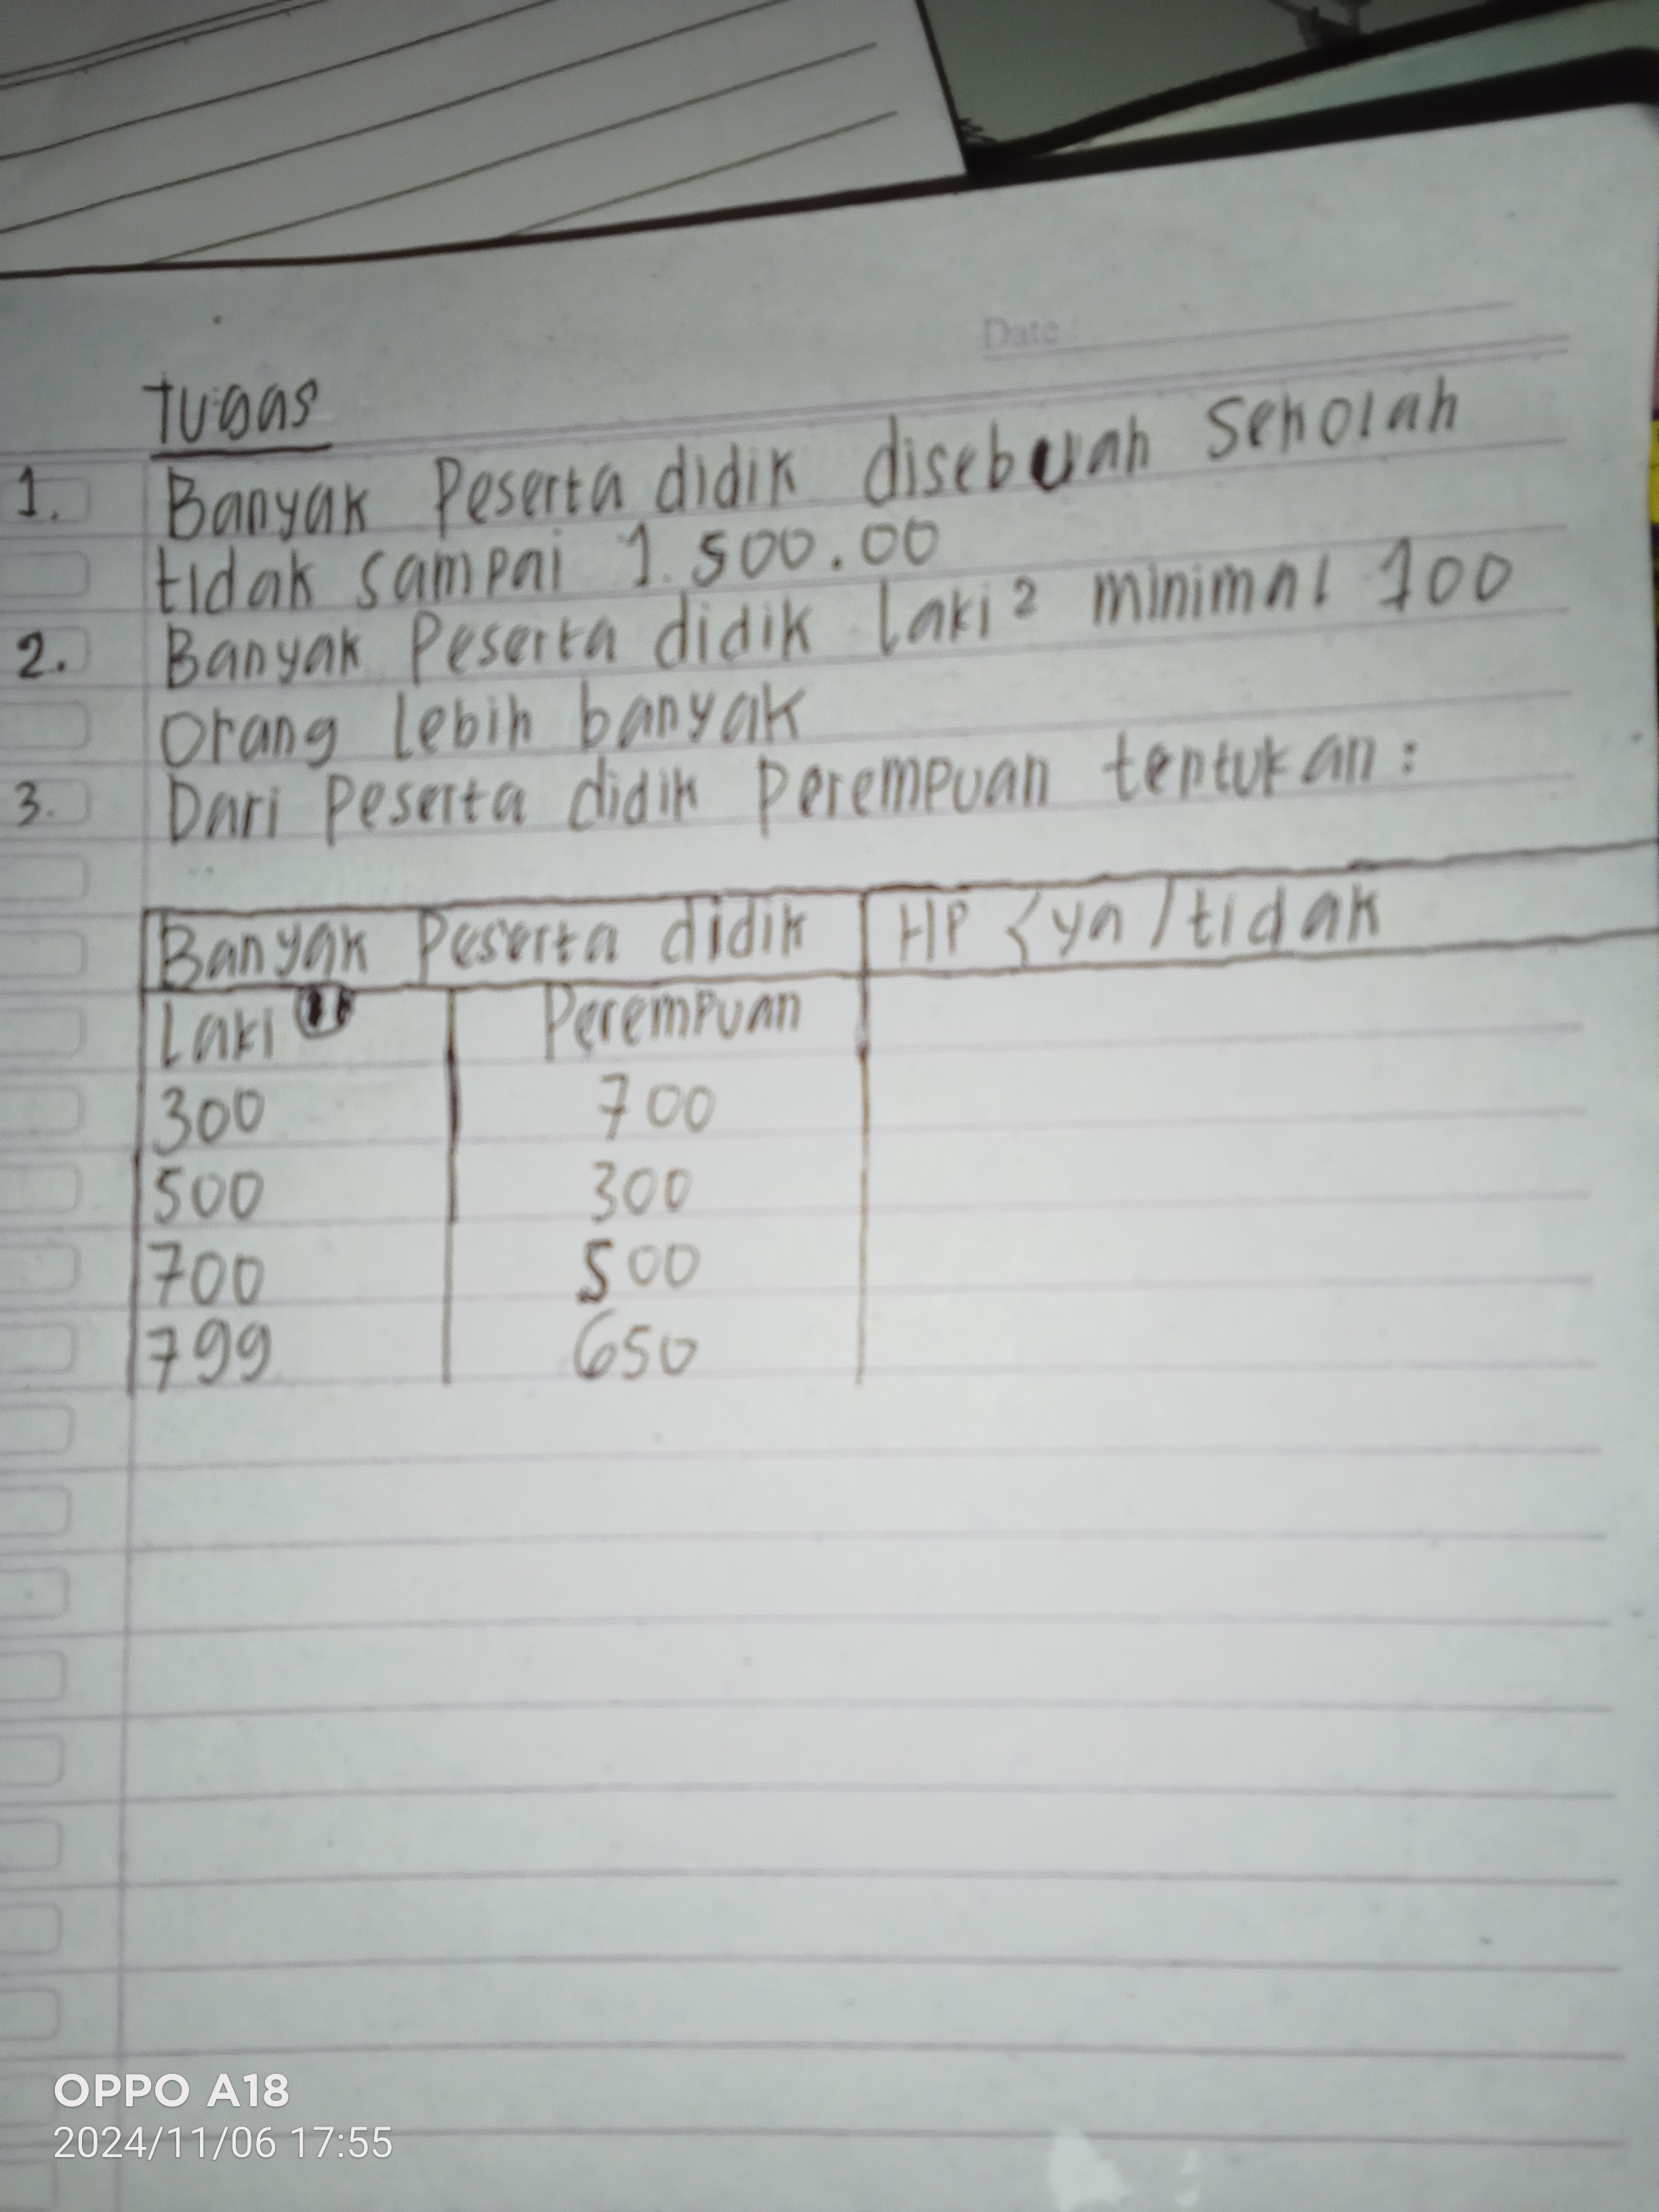 Date :
Tugas
1. Banyak Peserta didik disebuah Sekolah
tidak sampai 1.500.00
2. Banyak Peserta didik laki² minimal 100
orang lebih banyak
3. Dari Peserta didik Perempuan tentukan :
Banyak Peserta didik HP {ya / tidak
Laki Perempuan
300 700
500 300
700 500
799 650
OPPO A18
2024/11/06 17:55